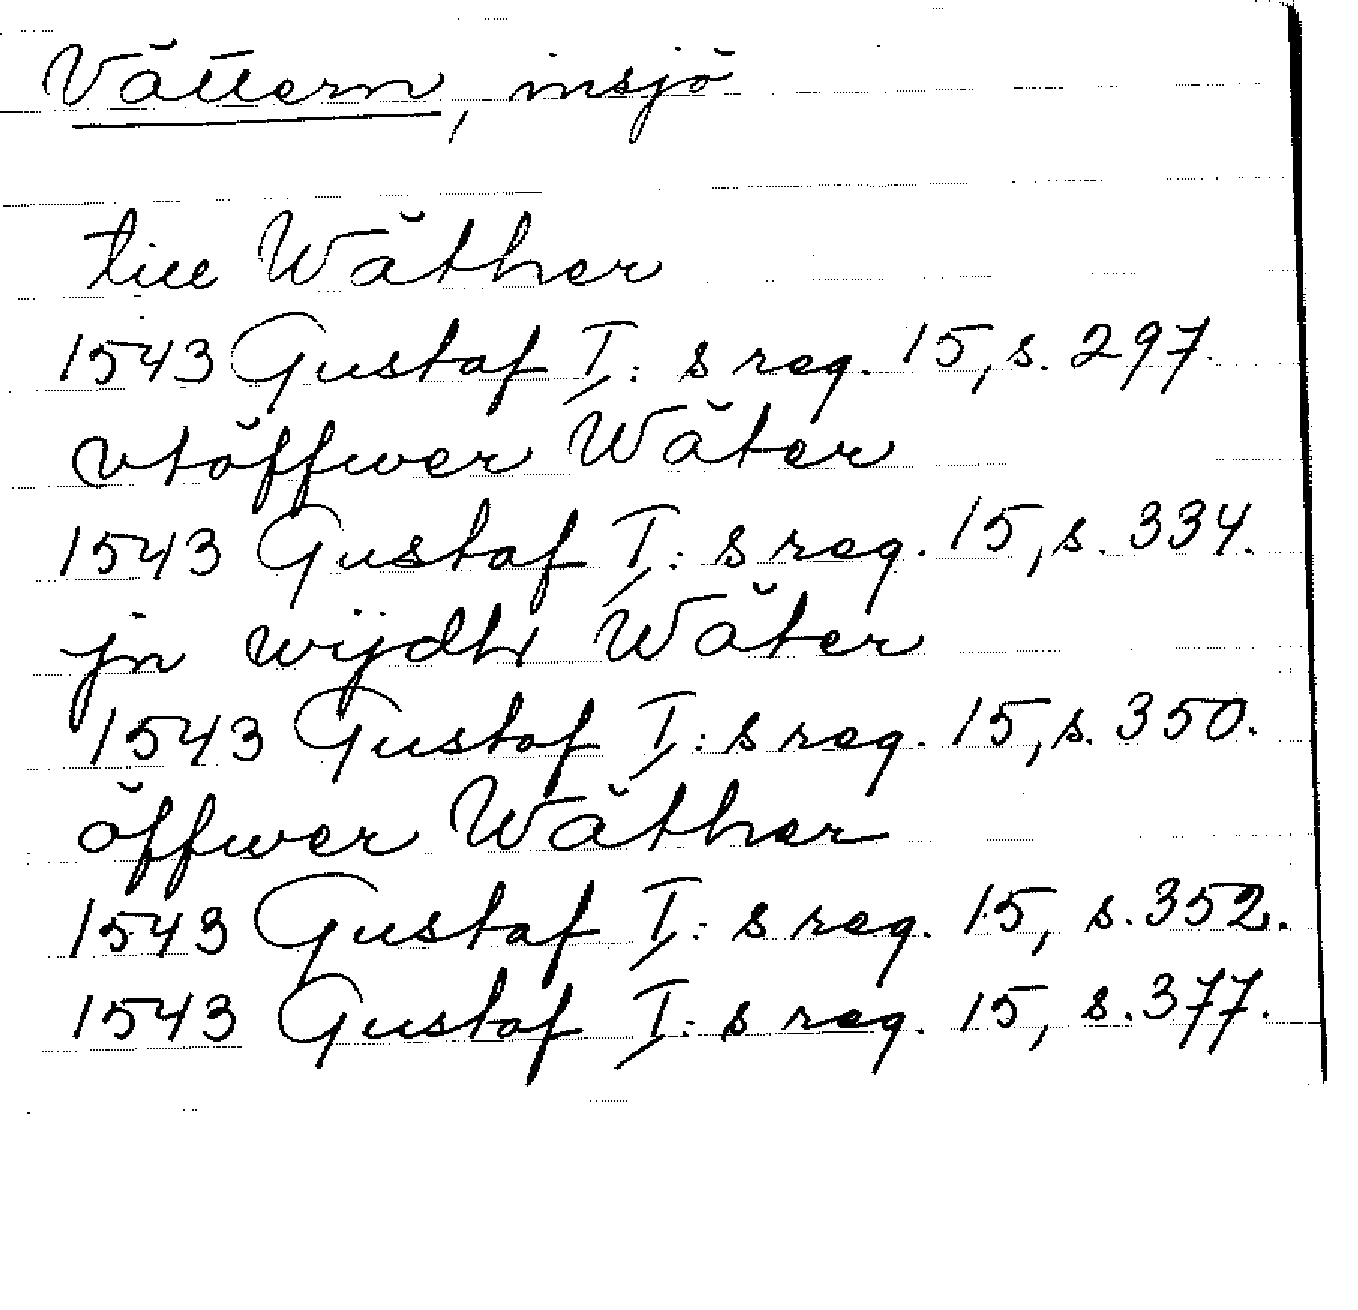 Vättern, insjö
till Wäther
1543 Gustaf I: s reg. 15, s. 297.
vtöffwer Wäter
1543 Gustaf I: s reg. 15, s. 334.
jn wijdh Wäter
1543 Gustaf I: s reg. 15, s. 350.
öffwer Wäther
1543 Gustaf I: s reg. 15, s. 352.
1543 Gustaf I: s reg. 15, s. 377.